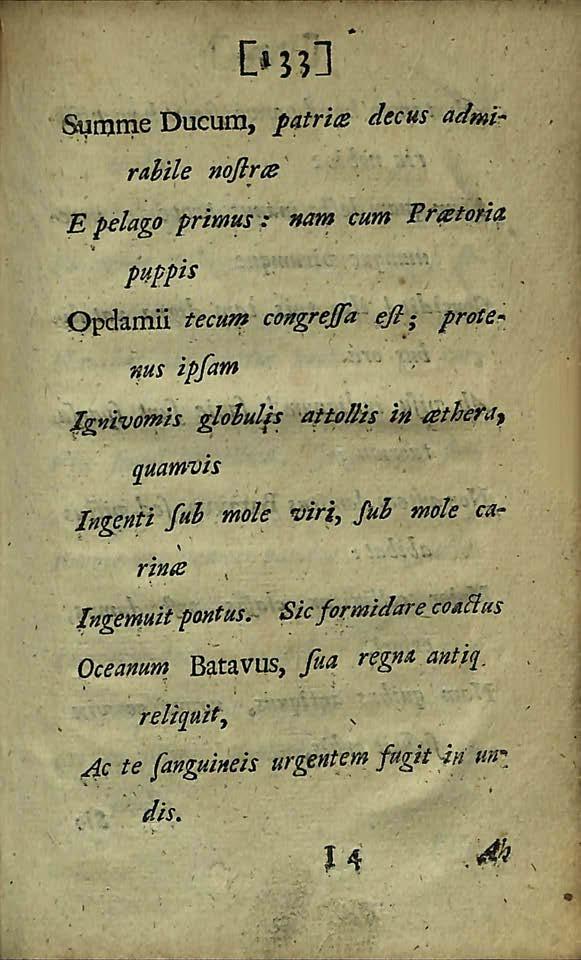 [133]
Summe Ducum, patriæ decus admi-
rabile noſtræ
E pelago primus: nam cum Prætoria
puppis
Opdamii tecum congreſſa eſt; prote-
nus ipſam
Ignivomis globulis attollis in æthera,
quamvis
Ingenti ſub mole viri, ſub mole ca-
rinæ
Ingemuit pontus. Sic formidare coactus
Oceanum Batavus, ſua regna antiq.
reliquit,
Ac te ſanguineis urgentem fugit in un-
dis.
I 4
Ah